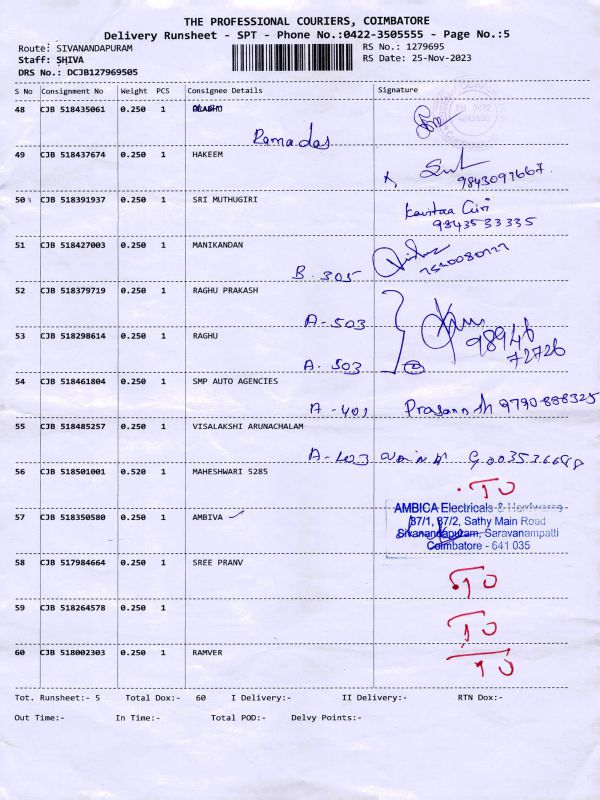 THE PROFESSIONAL COURIERS, COIMBATORE
Delivery Runsheet - SPT - Phone No.:0422-3505555 - Page No.:5
Route: SIVANANDAPURAM
RS No.: 1279695
Staff: SHIVA
RS Date: 25-Nov-2023
DRS No.: DCJB127969505
S No Consignment No Weight PCS Consignee Details Signature
48 CJB 518435061 0.250 1
Ramadas
49 CJB 518437674 0.250 1 HAKEEM
9843097667
50 CJB 518391937 0.250 1 SRI MUTHUGIRI
Kavitaa Giri
9843533335
51 CJB 518427003 0.250 1 MANIKANDAN
B-305
52 CJB 518379719 0.250 1 RAGHU PRAKASH
A-503
53 CJB 518298614 0.250 1 RAGHU
98946
72726
A-503
54 CJB 518461804 0.250 1 SMP AUTO AGENCIES
A-401 Prasannth 9790888325
55 CJB 518485257 0.250 1 VISALAKSHI ARUNACHALAM
A-403
56 CJB 518501001 0.520 1 MAHESHWARI 5285
TO
57 CJB 518350580 0.250 1 AMBIVA
AMBICA Electricals & Hardwares
87/1, 87/2, Sathy Main Road
Sivanandapuram, Saravanampatti
Coimbatore - 641 035
58 CJB 517984664 0.250 1 SREE PRANV
TO
59 CJB 518264578 0.250 1
TO
60 CJB 518002303 0.250 1 RAMVER
TO
Tot. Runsheet:- 5 Total Dox:- 60 I Delivery:- II Delivery:- RTN Dox:-
Out Time:- In Time:- Total POD:- Delvy Points:-